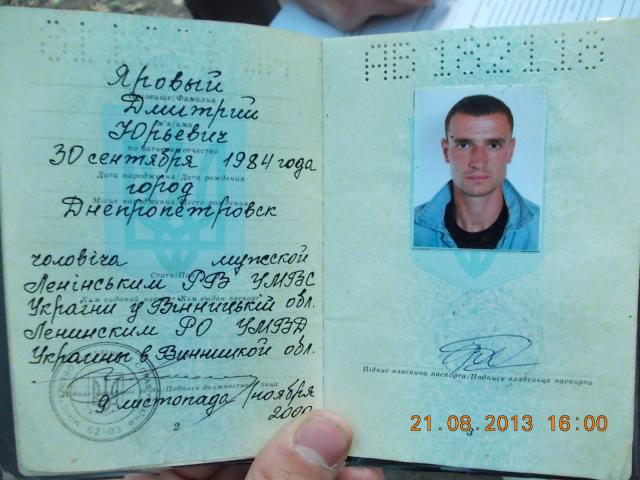 Яровый
Прізвище/Фамилия
Дмитрий
Ім'я/имя
Юрьевич
по батькові/отчество
30 сентября 1984 года
Дата народження/Дата рождения
город
Місце народження/Место рождения
Днепропетровск
чоловіча мужской
Стать/Пол
Ленінським РВ УМВС
Ким виданий паспорт/Кем выдан паспорт
України у Вінницькій обл.
Ленинским РО УМВД
Украины в Винницкой обл.
Підпис посадової особи/Подпись должностного лица
9 листопада/ноября
2
АВ 182118
Підпис власника паспорта/Подпись владельца паспорта
3
21.08.2013 16:00